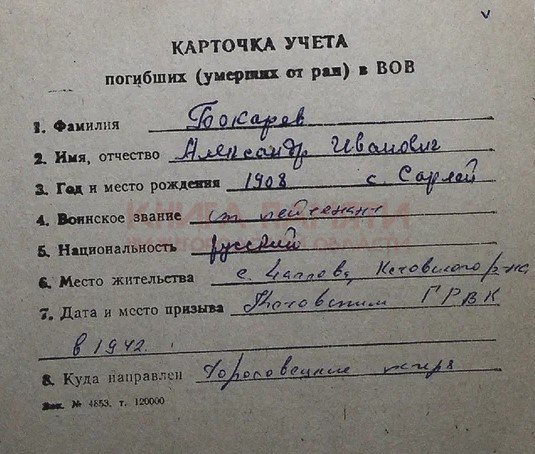 КАРТОЧКА УЧЕТА
погибших (умерших от ран) в ВОВ
1. Фамилия Бокарев
2. Имя, отчество Александр Иванович
3. Год и место рождения 1908 с. Сарлей
4. Воинское звание ст лейтенант
КНИГА ПАМЯТИ
5. Национальность русский
ОБЛАСТИ
6. Место жительства с.
7. Дата и место призыва ГРВК
в 1942.
8. Куда направлен Гороховецкие лагеря
Зак. № 4853. т. 120000